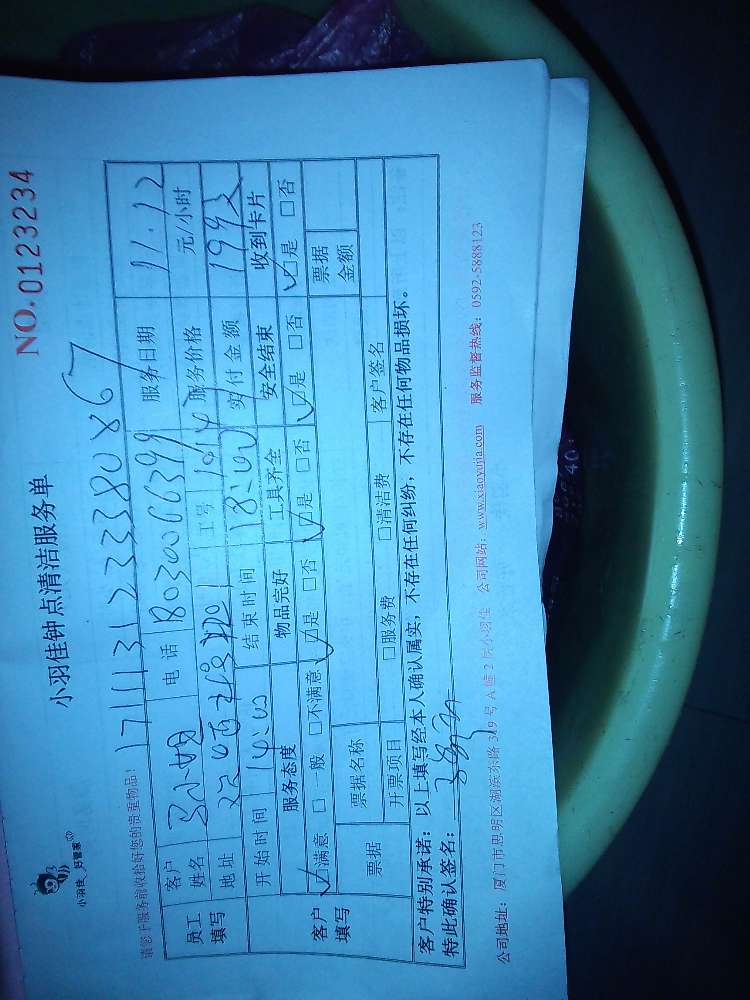 小羽佳 好管家
小羽佳钟点清洁服务单
NO.0123234
请您于服务前收拾好您的贵重物品!
1711131233380867
员工填写
客户姓名 马小姐 电话 18030066399 服务日期 11.12
地址 工号 服务价格 元/小时
开始时间 14:00 结束时间 18:00 实付金额 199元
客户填写
服务态度 物品完好 工具齐全 安全结束 收到卡片
☑满意 □一般 □不满意 ☑是 □否 ☑是 □否 ☑是 □否 ☑是 □否
票据 票据名称 票据金额
开票项目 □服务费 □清洁费 客户签名
客户特别承诺：以上填写经本人确认属实，不存在任何纠纷，不存在任何物品损坏。
特此确认签名：
公司地址：厦门市思明区湖滨东路349号A幢2 小羽佳 公司网站：www.xiaoyujia.com 服务监督热线：0592-5888123